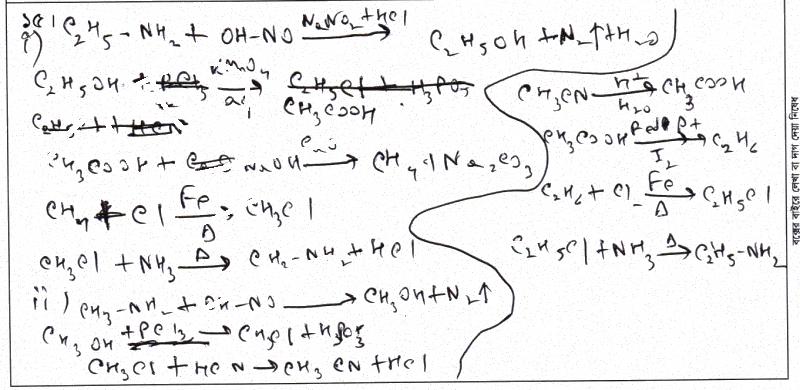 ১৫।
i) C₂H₅-NH₂ + OH-NO —NaNO₂+HCl→ C₂H₅OH + N₂↑ + H₂O
C₂H₅OH —KMnO₄→ CH₃COOH
CH₃COOH + NaOH —CaO→ CH₄ + Na₂CO₃
CH₄ + Cl —Fe/Δ→ CH₃Cl
CH₃Cl + NH₃ —Δ→ CH₃-NH₂ + HCl
ii) CH₃-NH₂ + OH-NO ⟶ CH₃OH + N₂↑
CH₃OH +PCl₃ → CH₃Cl + H₃PO₃
CH₃Cl + HCN → CH₃CN + HCl
CH₃CN —H⁺/H₂O→ CH₃COOH
CH₃COOH —Red P+/I₂→ C₂H₆
C₂H₆ + Cl₂ —Fe/Δ→ C₂H₅Cl
C₂H₅Cl + NH₃ —Δ→ C₂H₅-NH₂
বক্সের বাইরে লেখা বা দাগ দেয়া নিষেধ